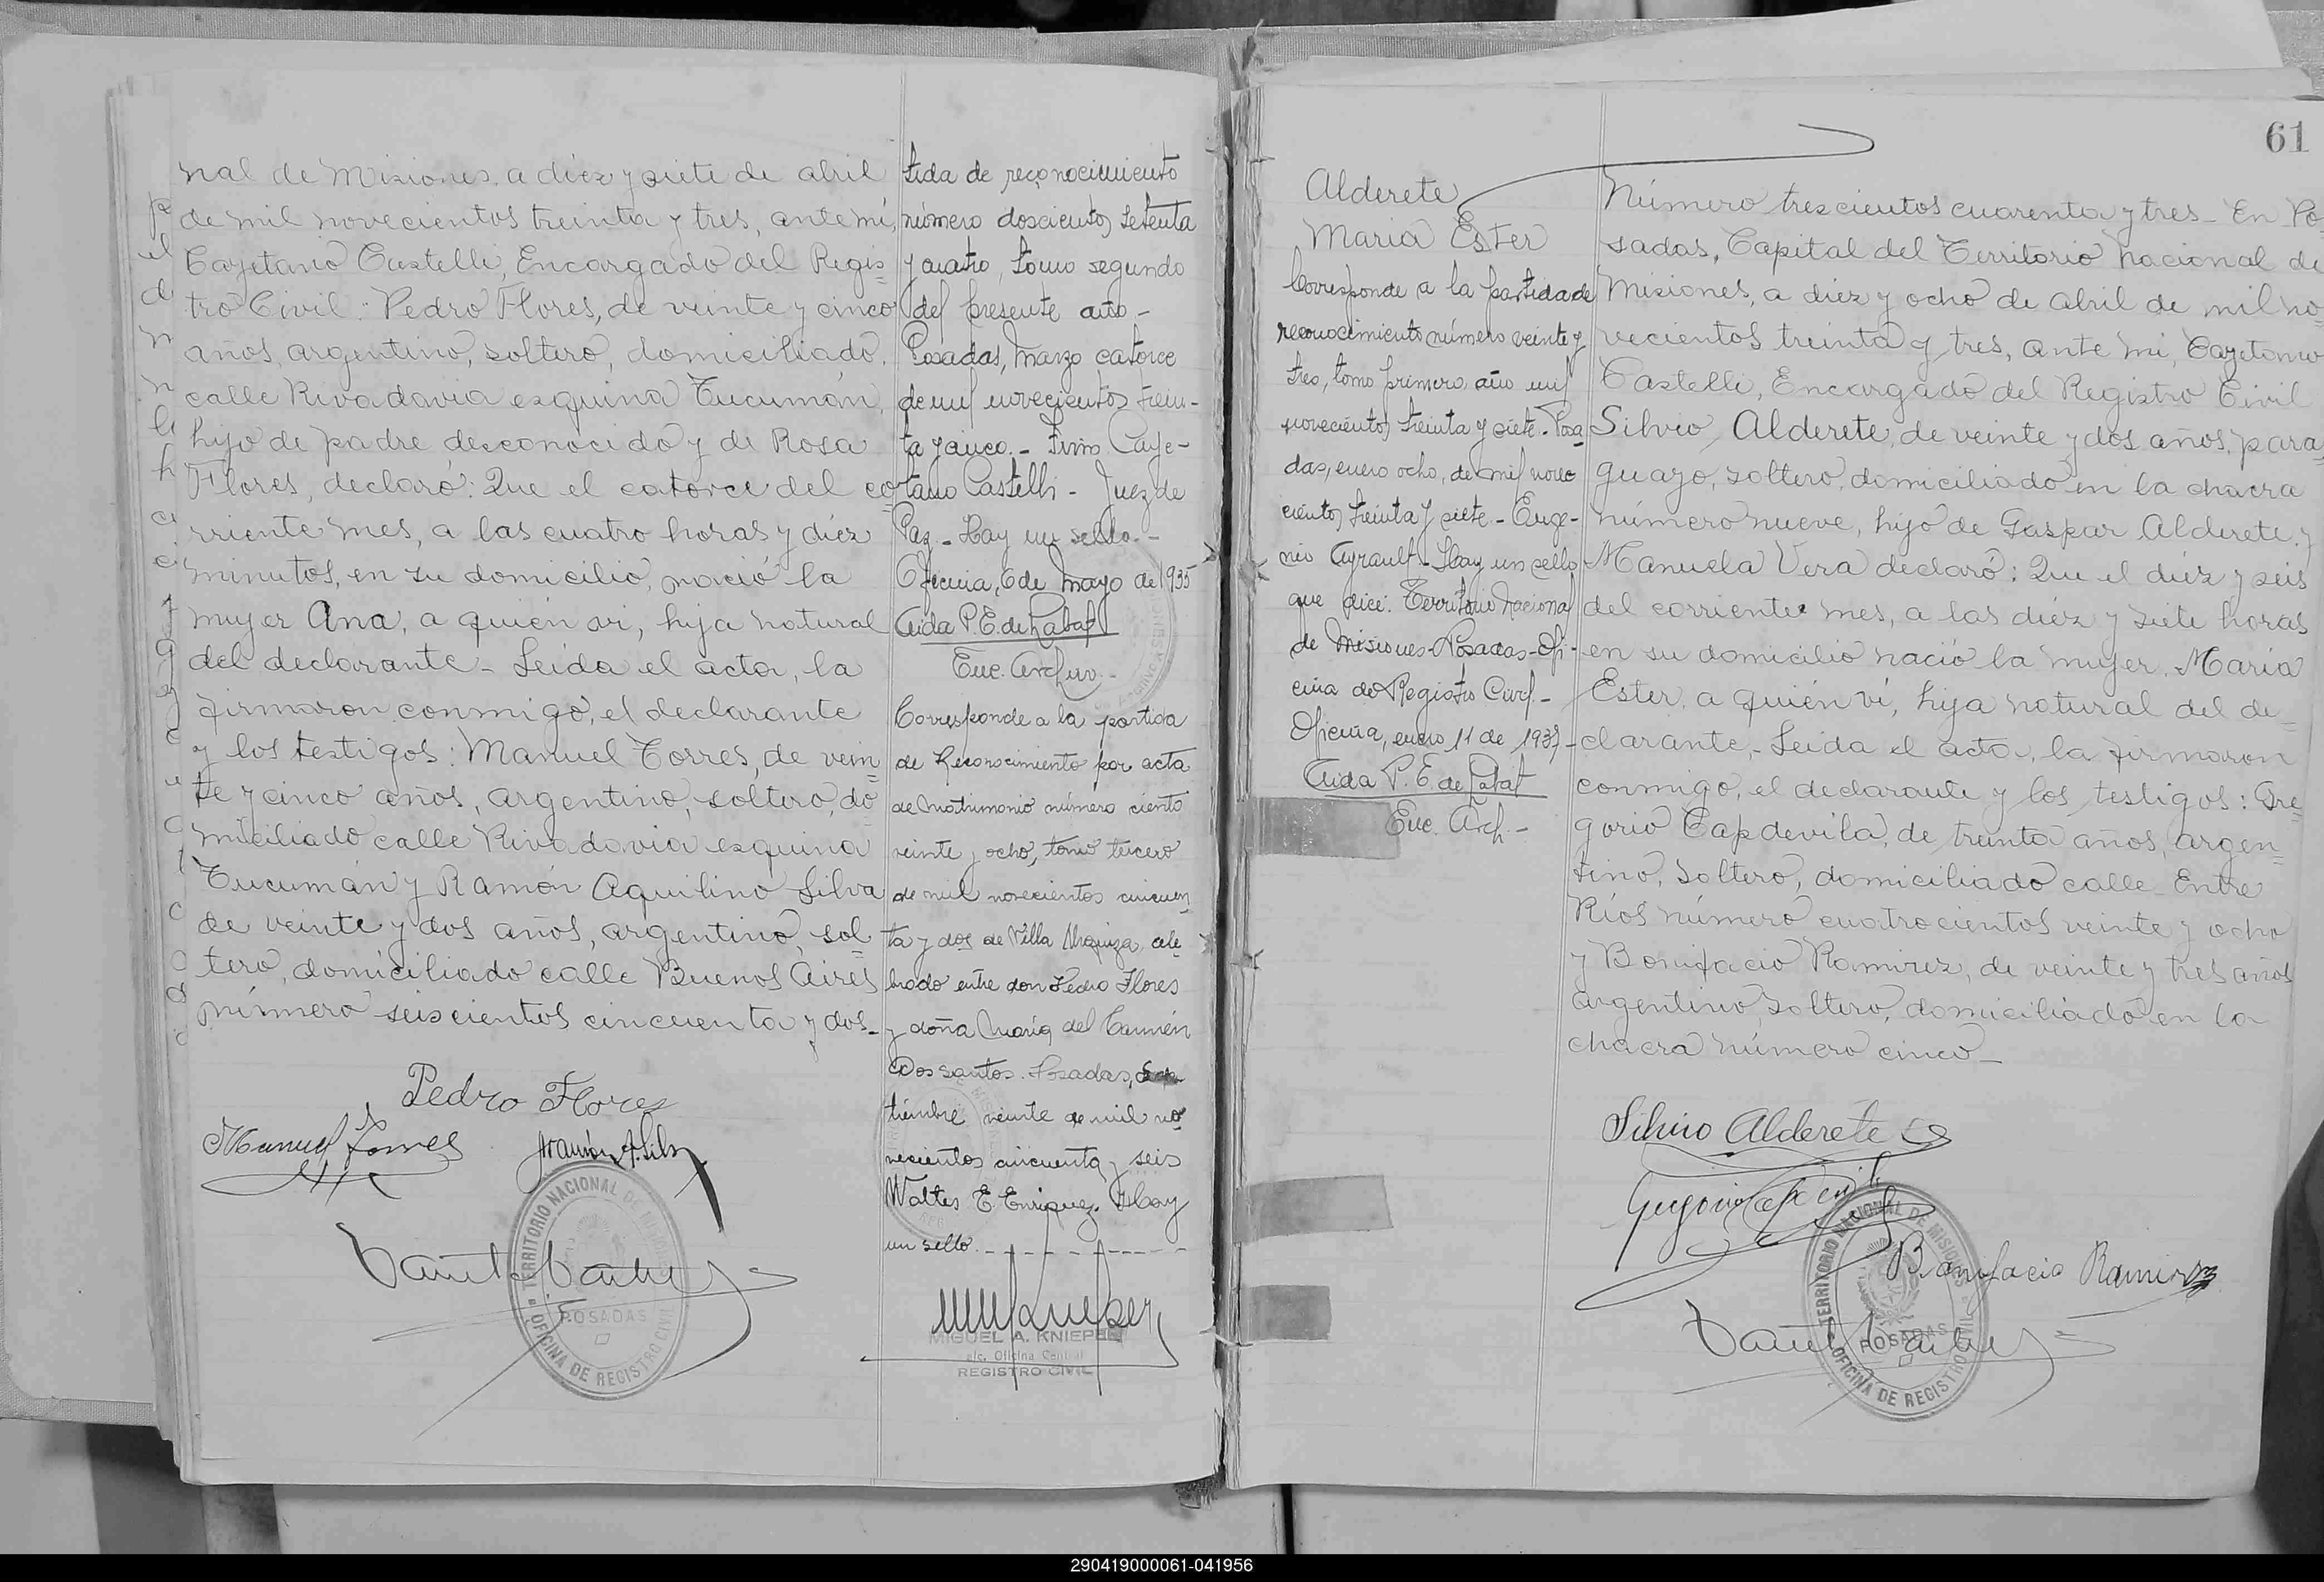 nal de Misiones, a diez y siete de abril
de mil novecientos treinta y tres, ante mí,
Cayetano Castelli, Encargado del Regis=
tro Civil: Pedro Flores, de veinte y cinco
años, argentino, soltero, domiciliado
calle Rivadavia esquina Tucumán,
hijo de padre desconocido y de Rosa
Flores, declaró: Que el catorce del co=
rriente mes, a las cuatro horas y diez
minutos, en su domicilio, nació la
mujer Ana, a quién vi, hija natural
del declarante - Leida el acta, la
firmaron conmigo, el declarante
y los testigos: Manuel Torres, de vein=
te y cinco años, argentino, soltero, do
miciliado calle Rivadavia esquina
Tucumán y Ramón Aquilino Silva
de veinte y dos años, argentino, sol=
tero, domiciliado calle Buenos Aires
número seiscientos cincuenta y dos -
Pedro Flores
Manuel Torres
Ramón A. Silva
TERRITORIO NACIONAL DE MISIONES
POSADAS
OFICINA DE REGISTRO CIVIL
tida de reconocimiento
número doscientos setenta
y cuatro, tomo segundo
del presente año -
Posadas, Marzo catorce
de mil novecientos trein-
ta y cinco. - Firm. Caye-
tano Castelli - Juez de
Paz - Hay un sello. -
Oficina, 6 de Mayo de 1935
Aida P. E. de Labat
Enc. Archivo. -
Corresponde a la partida
de Reconocimiento por acta
de Matrimonio número ciento
veinte y ocho, tomo tercero
de mil novecientos cincuen
ta y dos de Villa Urquiza, cele=
brado entre don Pedro Flores
y doña María del Carmén
Dos santos. Posadas, Sep
tiembre veinte de mil no
vecientos cincuenta y seis
Walter E. Enriquez. Hay
un sello. - - - - - - - - -
MIGUEL A. KNIEPER
a/c. Oficina Central
REGISTRO CIVIL
61
Alderete
Maria Ester
Corresponde a la partida de
reconocimiento número veinte y
tres, tomo primero año mil
novecientos treinta y siete - Posa
das, enero ocho, de mil nove
cientos treinta y siete - Euge-
nio Ayrault - Hay un sello
que dice: Territorio Nacional
de Misiones - Posadas - Ofi-
cina de Registro Civil -
Oficina, enero 11 de 1937 -
Aida P. E. de Labat
Enc. Arch. -
Número trescientos cuarenta y tres - En Po=
sadas, Capital del Territorio Nacional de
Misiones, a diez y ocho de abril de mil no
vecientos treinta y tres, ante mi, Cayetano
Castelli, Encargado del Registro Civil
Silvio Alderete, de veinte y dos años, para
guayo, soltero, domiciliado en la chacra
número nueve, hijo de Gaspar Alderete y
Manuela Vera declaró: Que el diez y seis
del corriente mes, a las diez y siete horas
en su domicilio nació la mujer María
Ester, a quién ví, hija natural del de=
clarante - Leida el acta, la firmaron
conmigo, el declarante y los testigos: Gre=
gorio Capdevila, de treinta años, argen=
tino, soltero, domiciliado calle Entre
Ríos número cuatrocientos veinte y ocho
y Bonifacio Ramirez, de veinte y tres años
argentino, soltero, domiciliado en la
chacra número cinco -
Silvio Alderete
Gregorio Capdevila
Bonifacio Ramirez
TERRITORIO NACIONAL DE MISIONES
POSADAS
OFICINA DE REGISTRO CIVIL
290419000061-041956